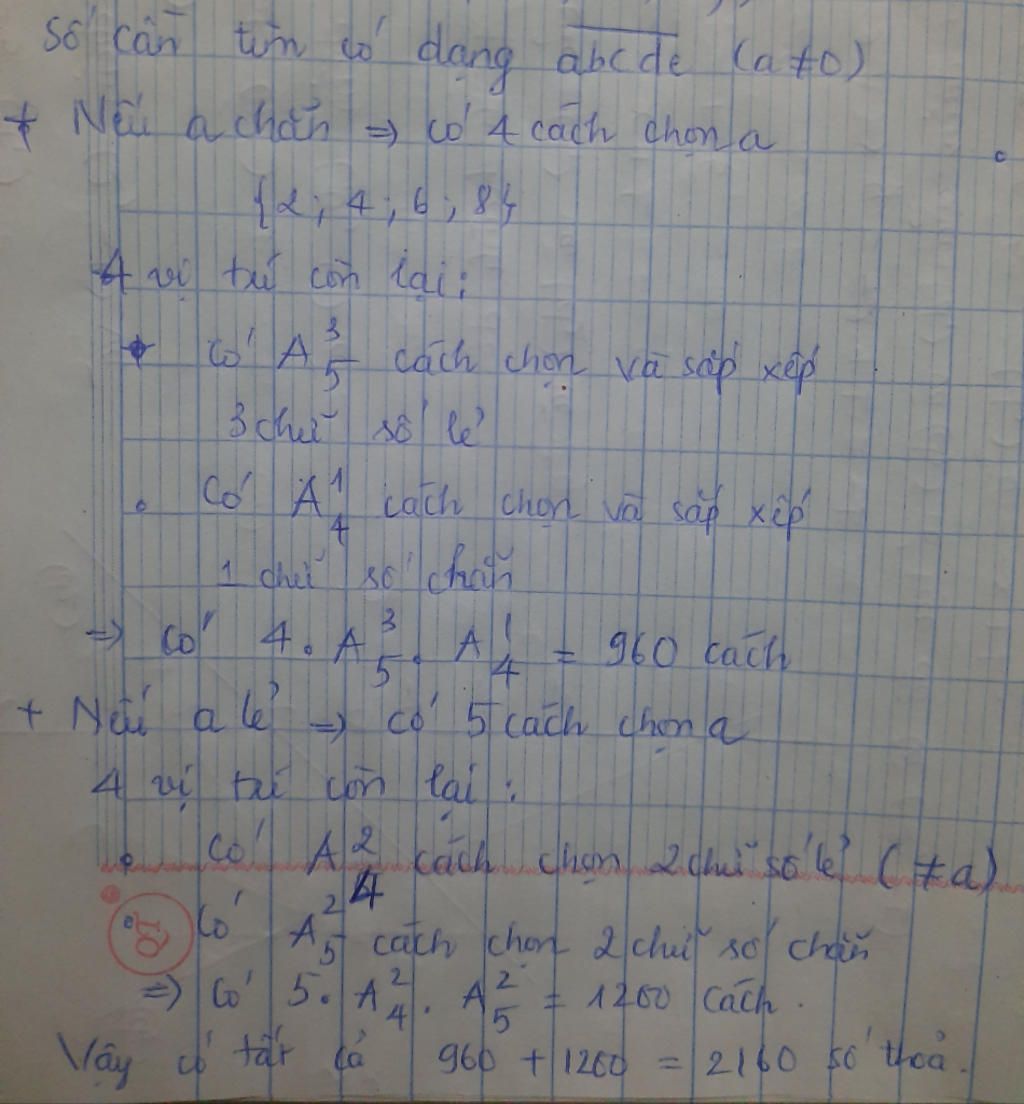 Số cần tìm có dạng abcde (a ≠ 0)
+ Nếu a chẵn => có 4 cách chọn a
{2; 4; 6; 8}
4 vị trí còn lại:
+ Có A³₅ cách chọn và sắp xếp
3 chữ số lẻ
• Có A¹₄ cách chọn và sắp xếp
1 chữ số chẵn
=> có 4. A³₅. A¹₄ = 960 cách
+ Nếu a lẻ => có 5 cách chọn a
4 vị trí còn lại:
• Có A²₄ cách chọn 2 chữ số lẻ (≠ a)
• Có A²₅ cách chọn 2 chữ số chẵn
=> có 5. A²₄. A²₅ = 1200 cách.
Vậy có tất cả 960 + 1200 = 2160 số thoả.